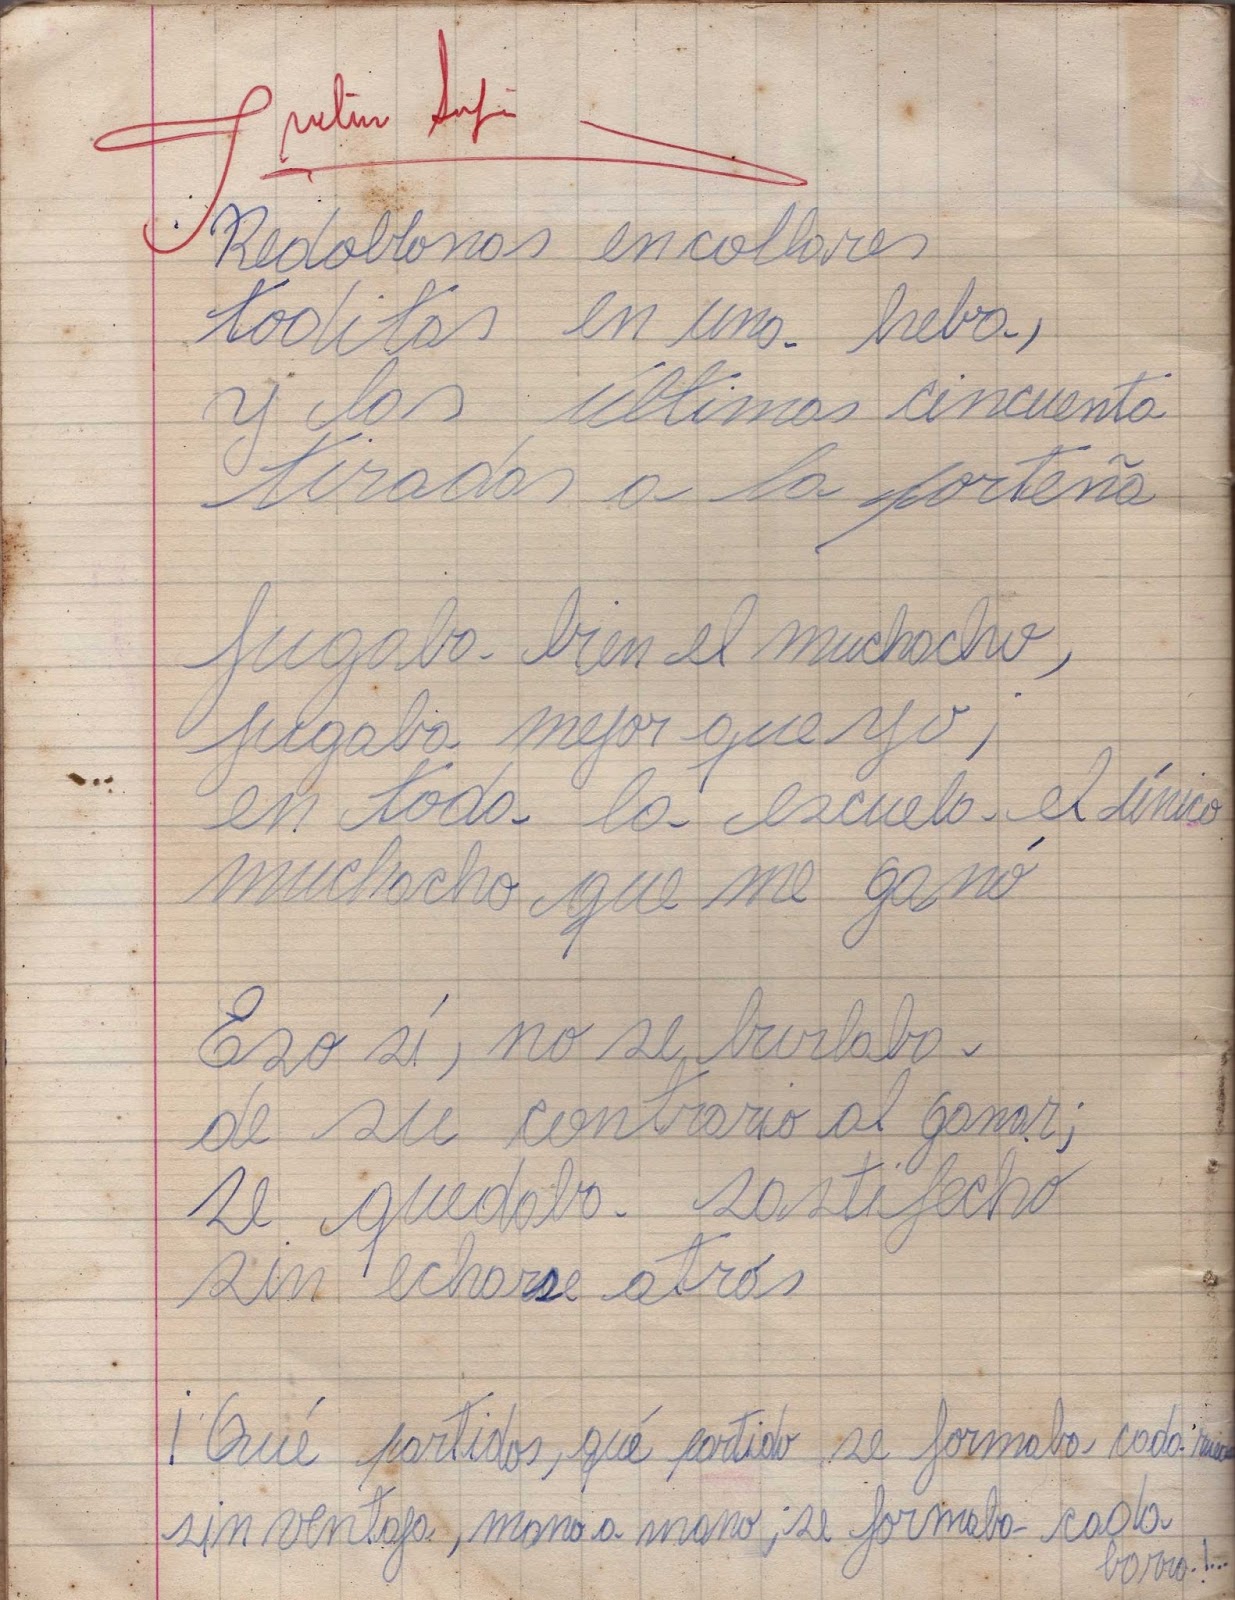 Redoblonas en collares
toditas en una hebra,
y las últimas cincuenta
tiradas a la porteña
Jugaba bien el muchacho,
jugaba mejor que yo;
en toda la escuela el único
muchacho que me ganó
Eso sí, no se burlaba
de su contrario al ganar;
se quedaba sastifecho
sin echarse atrás
¡Qué partidos, qué partido se formaba cada
sin ventaja, mano a mano; se formaba cada
barra!...